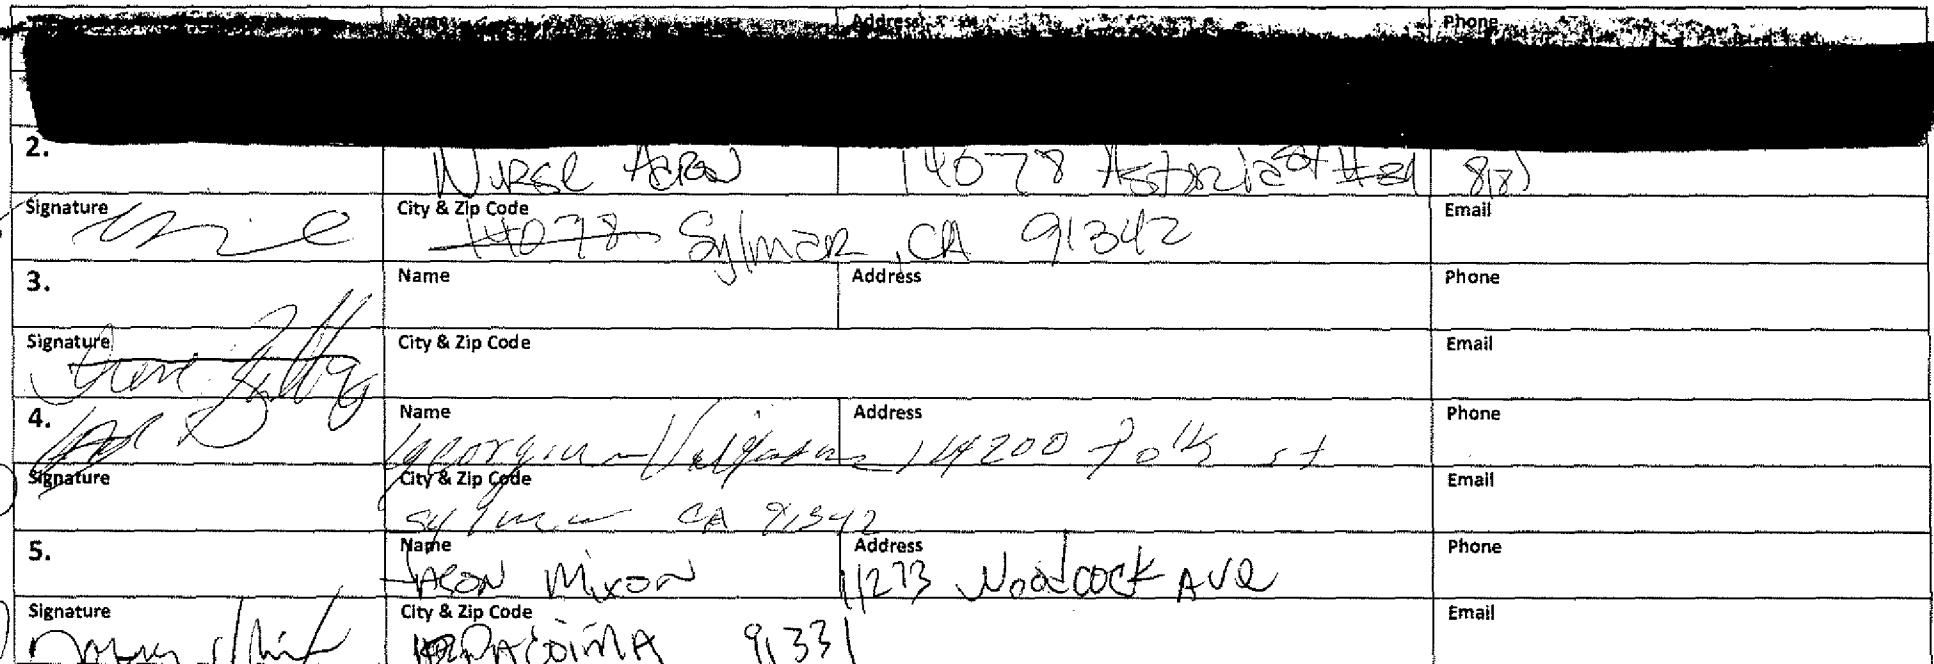 Name Address Phone
2. Nurse 14078 Astoria St #21 818)
Signature City & Zip Code 14078 Sylmar, CA 91342 Email
3. Name Address Phone
Signature City & Zip Code Email
4. Name Georgina Address 14200 Polk st Phone
Signature City & Zip Code Sylmar CA 91342 Email
5. Name Jason Mixon Address 11273 Woodcock Ave Phone
Signature City & Zip Code PACOIMA 91331 Email